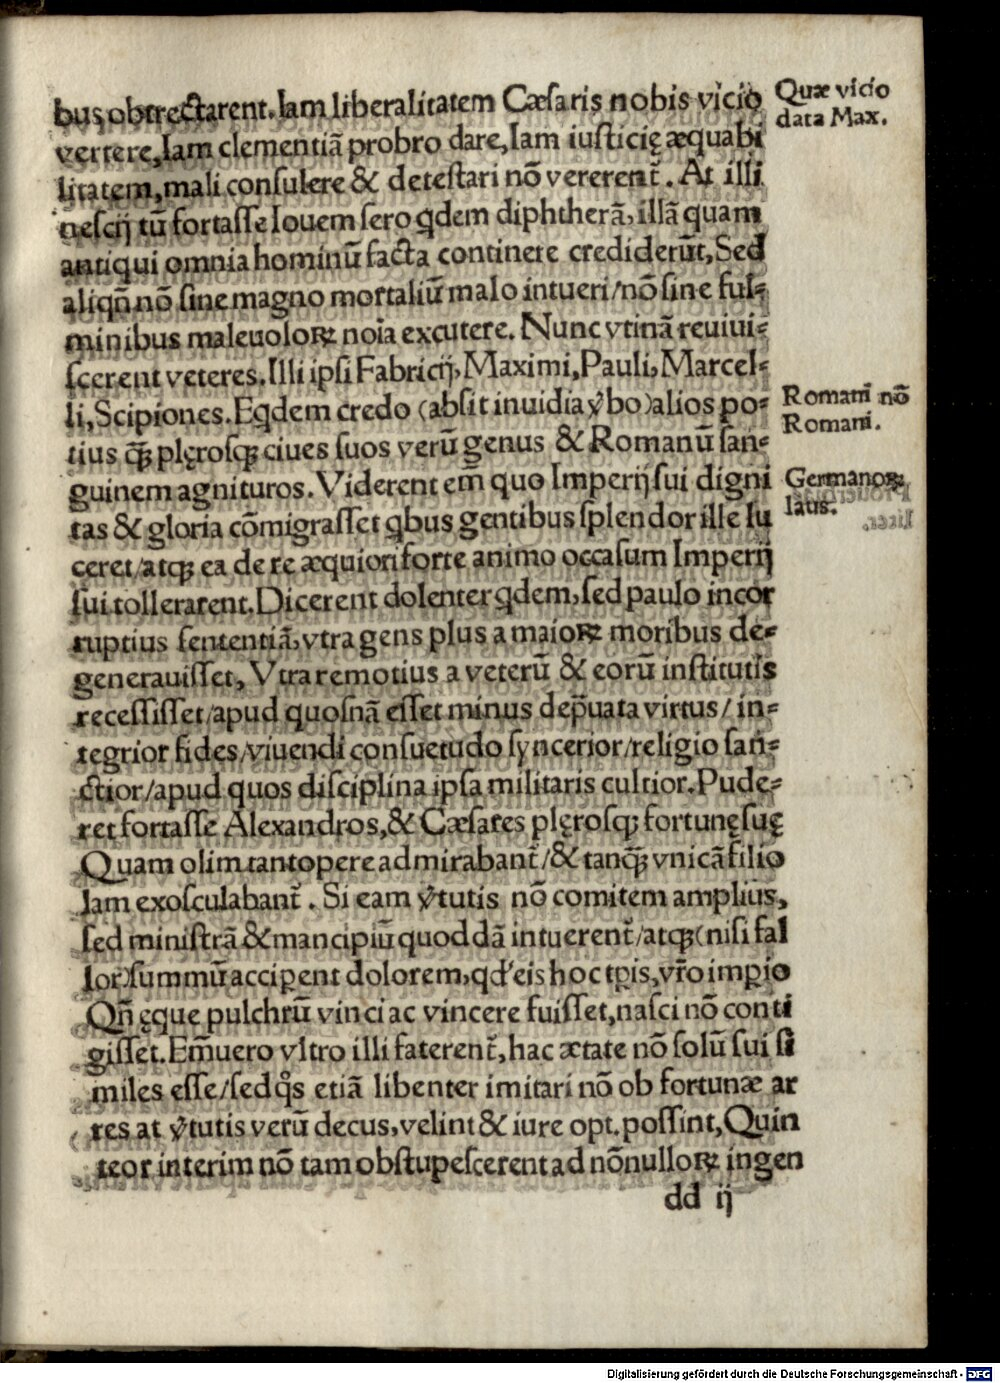 bus obtrectarent. Iam liberalitatem Cæsaris nobis vicio
vertere, Iam clementiā probro dare, Iam iusticię æquabi
litatem, mali consulere & detestari nō vererent̄. At illi
nescij tū fortasse Iouem sero qdem diphtherā, illā quam
antiqui omnia hominū facta continere crediderūt, Sed
aliqn̄ nō sine magno mortaliū malo intueri/nō sine ful⸗
minibus maleuoloꝝ noīa excutere. Nunc vtinā reuiui⸗
scerent veteres. Illi ipsi Fabricij, Maximi, Pauli, Marcel⸗
li, Scipiones. Eqdem credo (absit inuidia v̄bo) alios po⸗
tius q̄ꝫ plęrosqꝫ ciues suos verū genus & Romanū san⸗
guinem agnituros. Viderent em̄ quo Imperij sui digni
tas & gloria cōmigrasset qbus gentibus splendor ille lu
ceret/atqꝫ ea de re æquiori forte animo occasum Imperij
sui tollerarent. Dicerent dolenter qdem, sed paulo incor
ruptius sententiā, vtra gens plus a maioꝝ moribus de⸗
generauisset, Vtra remotius a veterū & eorū institutis
recessisset/apud quosnā esset minus dep̄uata virtus/in⸗
tegrior fides/viuendi consuetudo syncerior/religio san⸗
ctior/apud quos disciplina ipsa militaris cultior. Pude⸗
ret fortasse Alexandros, & Cæsares plęrosqꝫ fortunę suę
Quam olim tantopere admirabant̄/& tanq̄ꝫ vnicā filio
lam exosculabant̄. Si eam v̄tutis nō comitem amplius,
sed ministrā & mancipiū quoddā intuerent̄/atqꝫ (nisi fal
lor) summū acciꝑent dolorem, qd' eis hoc tꝑis, vr̄o imꝑio
Qn̄ ęque pulchrū vinci ac vincere fuisset, nasci nō conti
gisset. Em̄uero vltro illi faterent̄, hac ætate nō solū sui si
miles esse/sed qͦs etiā libenter imitari nō ob fortunæ ar
res at v̄tutis verū decus, velint & iure opt. possint, Quin
teor interim nō tam obstupescerent ad nōnulloꝝ ingen
dd ij
Quæ vicio
data Max.
Romani nō
Romani.
Germanoꝝ
laus.
Digitalisierung gefördert durch die Deutsche Forschungsgemeinschaft - DFG